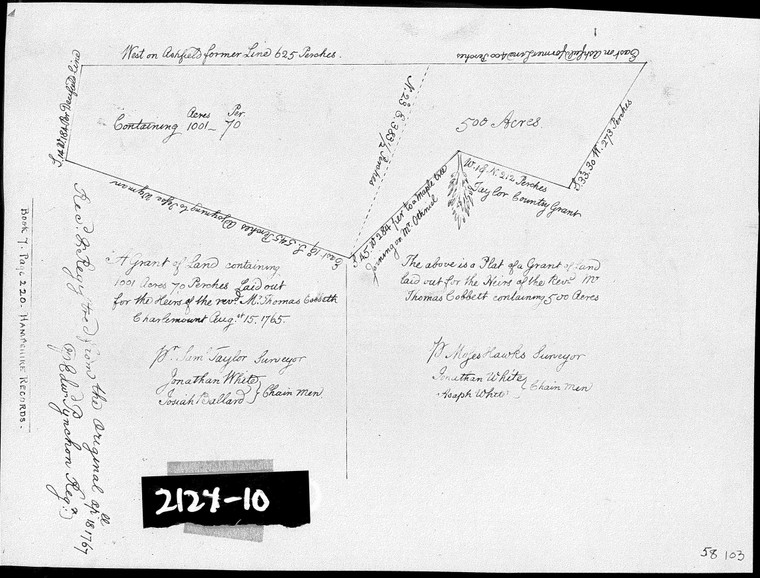 West on Ashfield former Line 625 Perches.
East on Ashfield former Line 400 Perches
Acres Per
Containing 1001 – 70
N. 23 E 383 1/2 Perches
500 Acres
S. 33.30 W. 273 Perches
W. 19. N. 212 Perches
Taylor Country Grant
S. 45. W 284 per to a Maple tree
Corning on Mr. Othniel
East 19 S. 545 Perches Adjoyning to Tyler Wyman
A Grant of Land containing
1001 Acres 70 Perches Laid out
for the Heirs of the revd. Mr. Thomas Cobbett
Charlemount Augst 15. 1765.
Pr. Saml Taylor Surveyor
Jonathan White
Josiah Ballard } Chain Men
The above is a Plat of a Grant of Land
laid out for the Heirs of the Revd. Mr
Thomas Cobbett containing 500 Acres
Pr Moses Hawks Surveyor
Jonathan White
Asaph White } Chain Men
Recd. & Regd from the original apll 18 1767
Edwd Pynchon Regr.
Book 7. Page 220. Hampshire Records.
2124-10
58 103